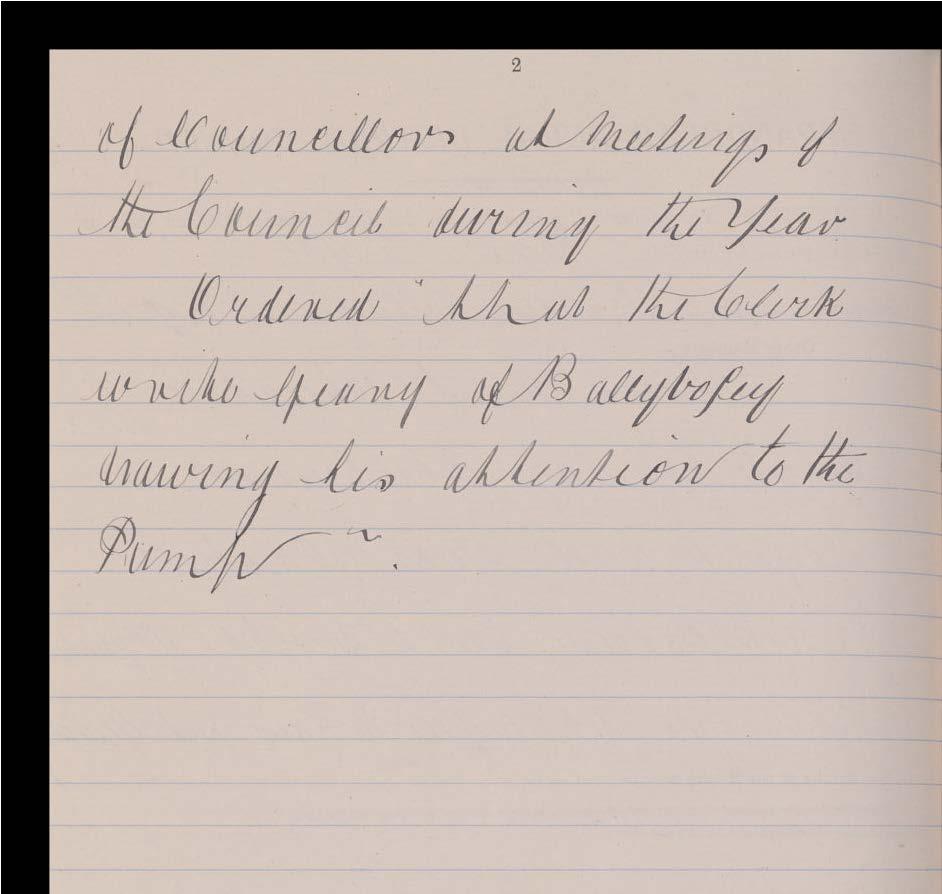 2
of Councillors at Meetings of
the Council during the Year
Ordered "that the Clerk
write of Ballybofey
drawing his attention to the
Pump".